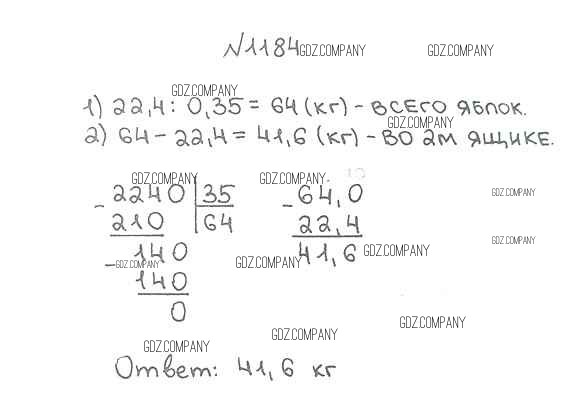 №1184 GDZ.COMPANY GDZ.COMPANY
GDZ.COMPANY
1) 22,4 : 0,35 = 64 (кг) - ВСЕГО ЯБЛОК.
GDZ.COMPANY
2) 64 - 22,4 = 41,6 (кг) - ВО 2М ЯЩИКЕ.
GDZ.COMPANY GDZ.COMPANY
- 2240 35 - 64,0 GDZ.COMPANY
210 64 22,4
140 41,6 GDZ.COMPANY GDZ.COMPANY
- GDZ.COMPANY GDZ.COMPANY
140
0
GDZ.COMPANY GDZ.COMPANY GDZ.COMPANY
Ответ: 41,6 кг